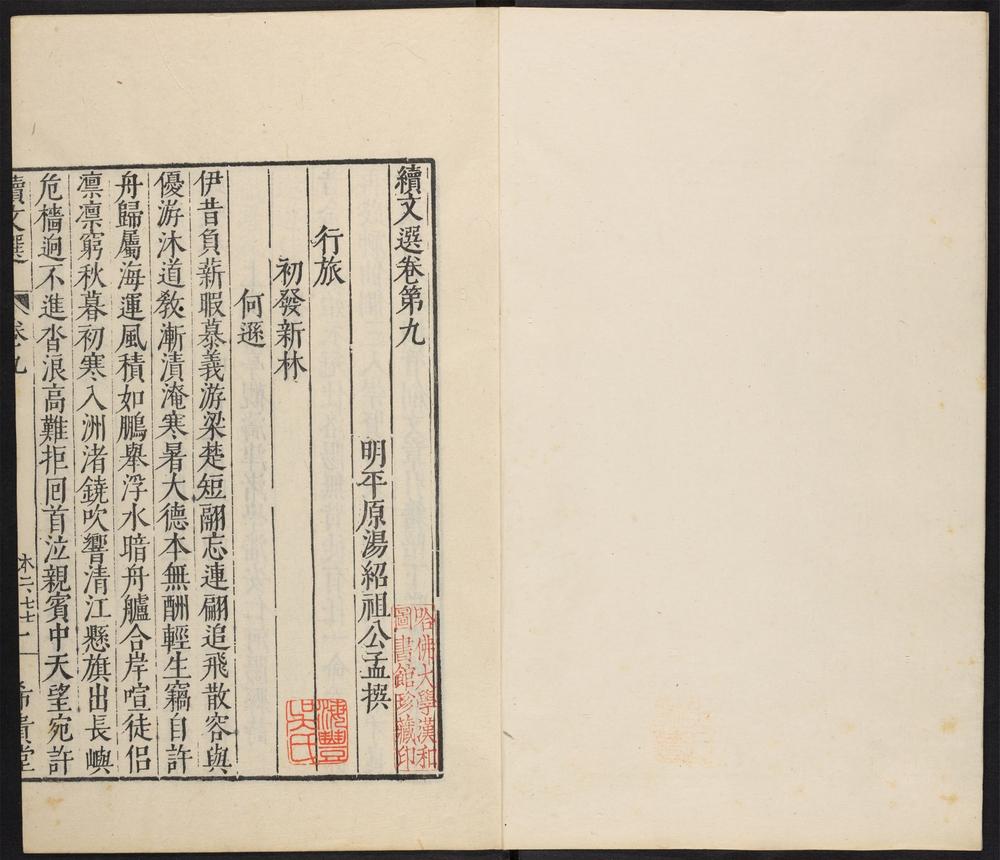 續文選卷第九
明平原湯紹祖公孟撰
行旅
初發新林
何遜
伊昔負薪暇慕義游梁楚短翮忘連翩追飛散容與
優游沐道教漸漬淹寒暑大德本無酬輕生竊自許
舟歸屬海運風積如鵬舉浮水暗舟艫合岸喧徒侶
凛凛窮秋暮初寒入洲渚鐃吹響清江懸旗出長嶼
危檣迥不進沓浪高難拒回首泣親賓中天望宛許
續文選 卷九 希貴堂
哈佛大學漢和
圖書館珍藏印
海豐
吳氏